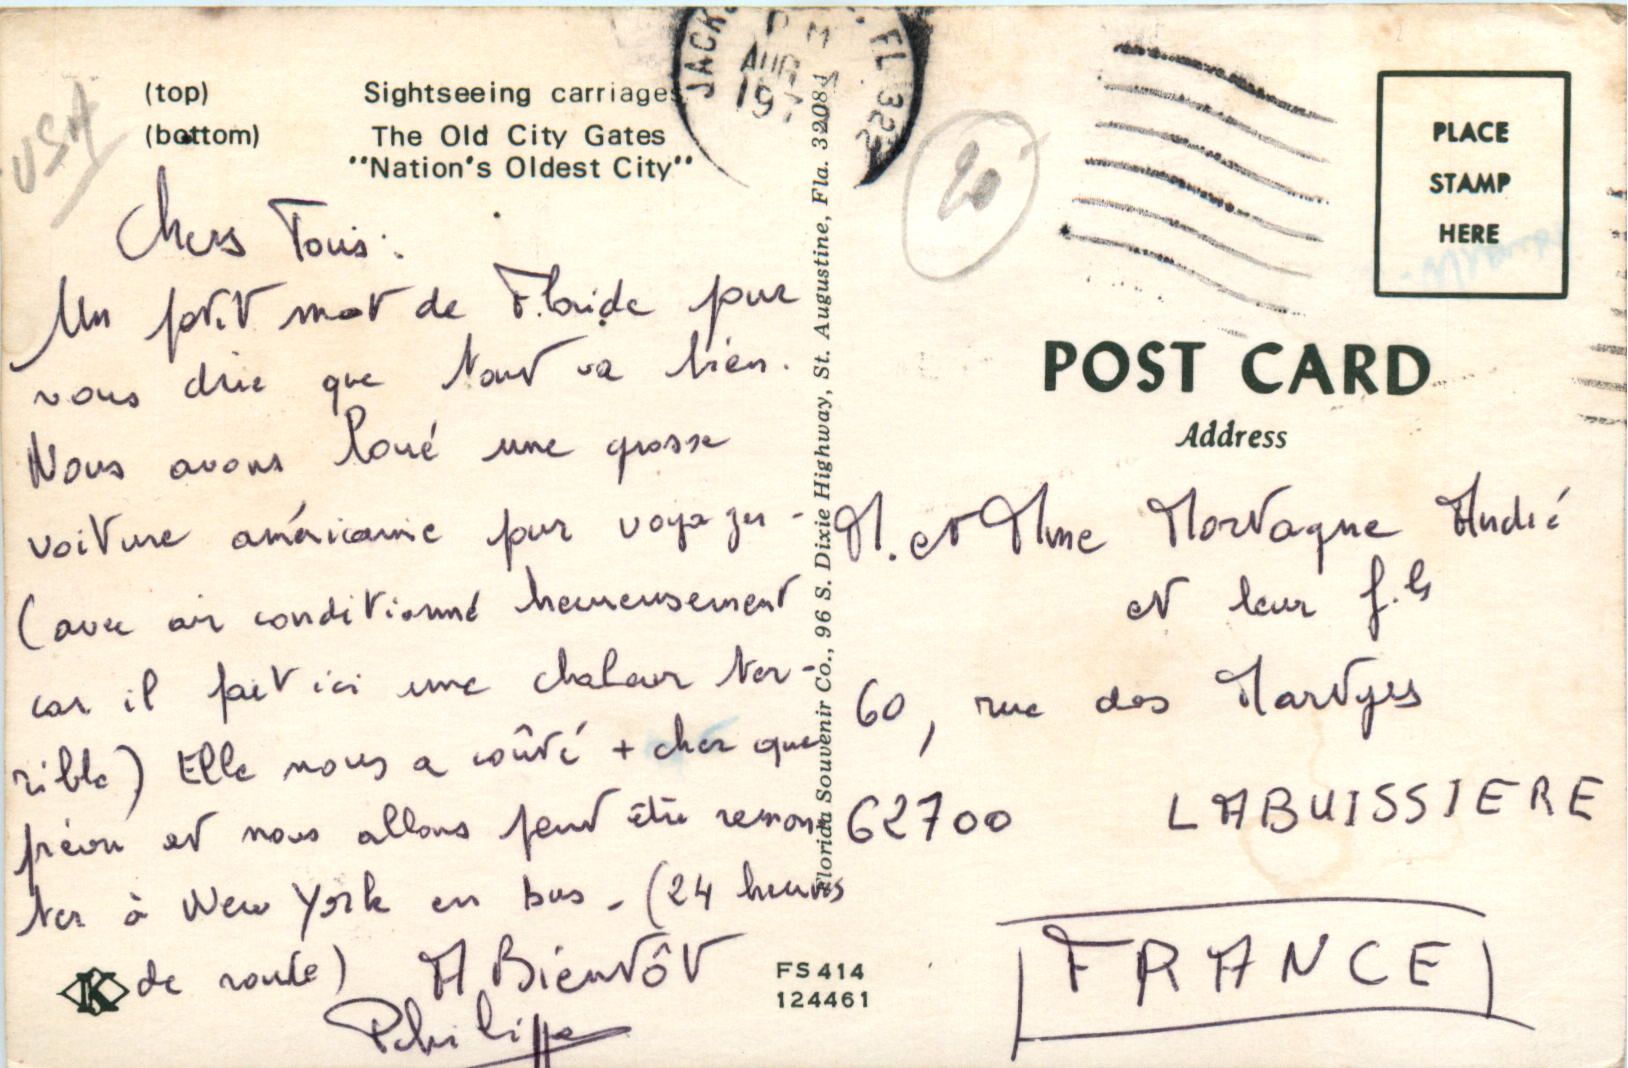 USA
(top) Sightseeing carriages
(bottom) The Old City Gates
"Nation's Oldest City"
Chers Tous:
Un petit mot de Floride pour
vous dire que tout va bien.
Nous avons loué une grosse
voiture américaine pour voyager -
(avec air conditionné heureusement
car il fait ici une chaleur ter-
rible) Elle nous a coûté + cher que
prévu et nous allons peut être remon-
ter à New York en bus - (24 heures
de route) A Bientôt
Philippe
K
FS 414
124461
Florida Souvenir Co., 96 S. Dixie Highway, St. Augustine, Fla. 32084
JACK FL 322
PM
AUG
197
20
PLACE
STAMP
HERE
POST CARD
Address
M. et Mme Mortagne André
et leur fils
60, rue des Martyrs
62700 LABUISSIERE
FRANCE